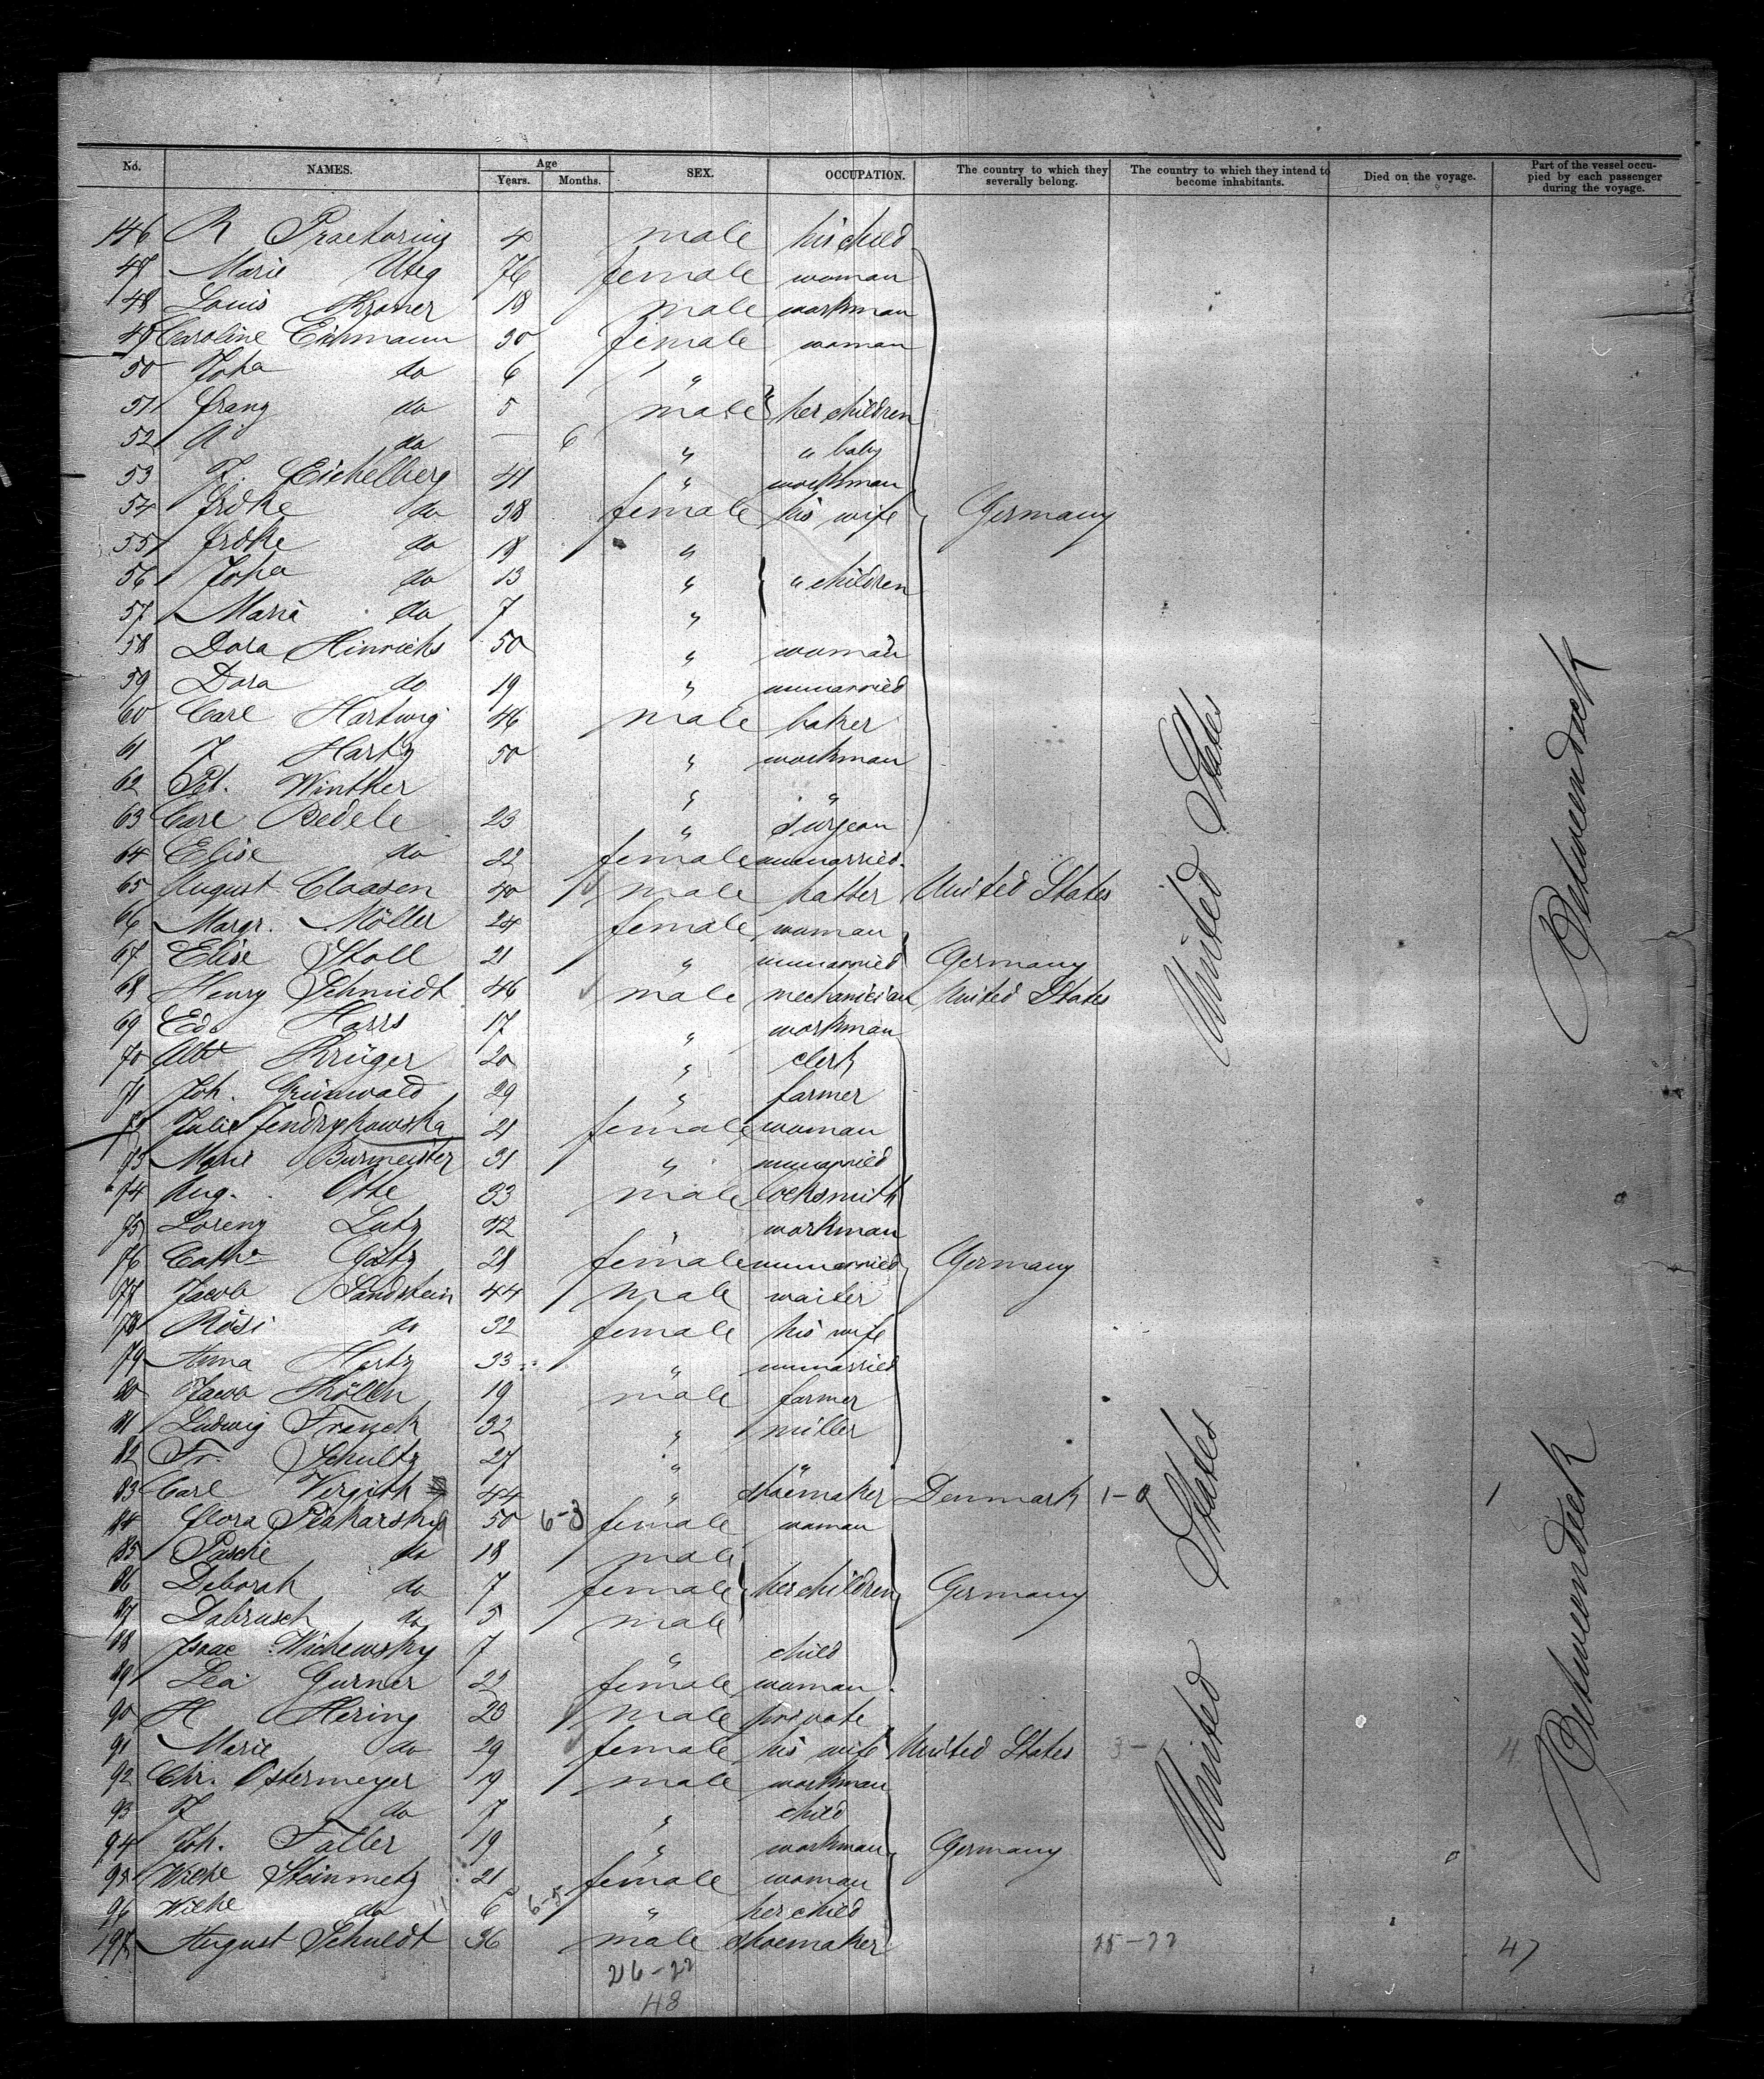 No. NAMES. Age Years. Months. SEX. OCCUPATION. The country to which they severally belong. The country to which they intend to become inhabitants. Died on the voyage. Part of the vessel occupied by each passenger during the voyage.
146 R Praetorius 4 male his child
47 Marie Uteg 76 female woman
48 Louis Kroner 18 male workman
49 Caroline Eichmann 30 female woman
50 Joha do 6 "
51 Franz do 5 male her children
52 A do — 6 " " baby
53 F. Eichelberg 41 " workman
54 Frdke do 38 female his wife Germany
55 Frdke do 18 "
56 Joha do 13 " " children
57 Marie do 7 "
58 Dora Hinrichs 50 " woman
59 Dora do 19 " unmarried
60 Carl Hartwig 46 male baker
61 J Hartz 50 " workman
62 Pet. Winther " "
63 Carl Bedele 23 " surgeon
64 Elise do 22 female unmarried
65 August Claasen 40 male hatter United States
66 Margr. Möller 24 female woman
67 Elise Stoll 21 " unmarried Germany
68 Henry Schmidt 46 male mechanician United States
69 Ed. Harrs 17 " workman
70 Albt Krüger 20 " clerk
71 Joh. Grünwald 29 " farmer
72 Julie Jendrykowska 21 female woman
73 Marie Burmeister 31 " unmarried
74 Aug. Otte 33 male locksmith
75 Lorenz Lutz 42 " workman
76 Cathe Götz 28 female unmarried Germany
77 Jacob Sandstein 44 male waiter
78 Rosi do 32 female his wife
79 Anna Hartz 33 " unmarried
80 Jacob Köllen 19 male farmer
81 Ludwig Franck 32 " miller
82 Fr. Schultz 27 " "
83 Carl Vergith 44 " shoemaker Denmark 1-0 1
84 Flora Piakarsky 50 6-3 female woman
85 Pasche do 18 male
86 Deborah do 7 female her children Germany
87 Dabrusch do 5 male
88 Isaac Wichewsky 7 " child
89 Lea Gurner 22 female woman
90 H Hering 23 male private
91 Marie do 29 female his wife United States 3- 4
92 Chr. Ostermeyer 19 male workman
93 J do 7 " child
94 Joh. Faller 19 " workman Germany
95 Wilhe Steinmetz 21 female woman
96 Wilhe do 11 6 6-5 " her child
197 August Schuldt 36 male shoemaker 25-22 47
26-22
48
United States
Betweendeck
United States
Betweendeck